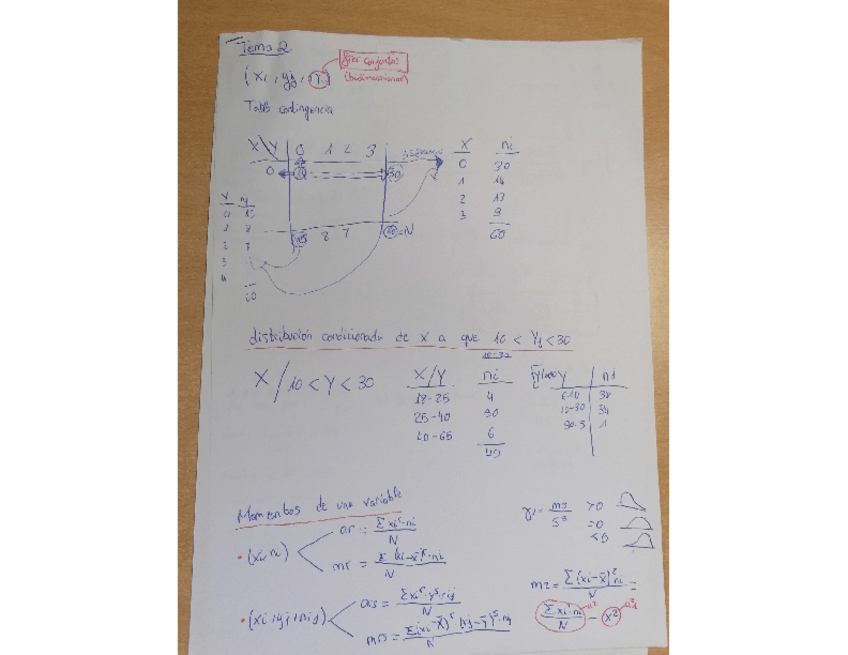 Tema 2
(xi, yj, nij) frec conjuntas
(bidimensional)
Tabla contingencia
X Y 0 1 2 3
0 30
15 8 7 60=N
X ni
0 30
1 14
2 13
3 3
60
Y nj
0 15
1 8
2 7
3
4
60
distribución condicionada de X a que 10 < Yj < 30
X / 10 < Y < 30
X/Y ni
18-25 4
25-40 30
40-65 6
40
Y
10-30 34
Momentos de una variable
• (xi, ni)
ar = Σ xi^r·ni / N
mr = Σ (xi-x̄)^r·ni / N
• (xi, yj, nij)
ars = Σ xi^r·yj^s·nij / N
mrs = Σ(xi-x̄)^r (yj-ȳ)^s·nij / N
γ1 = m3 / S^3 >0
=0
<0
m2 = Σ(xi-x̄)^2 ni / N =
Σ xi^2·ni / N - x̄^2